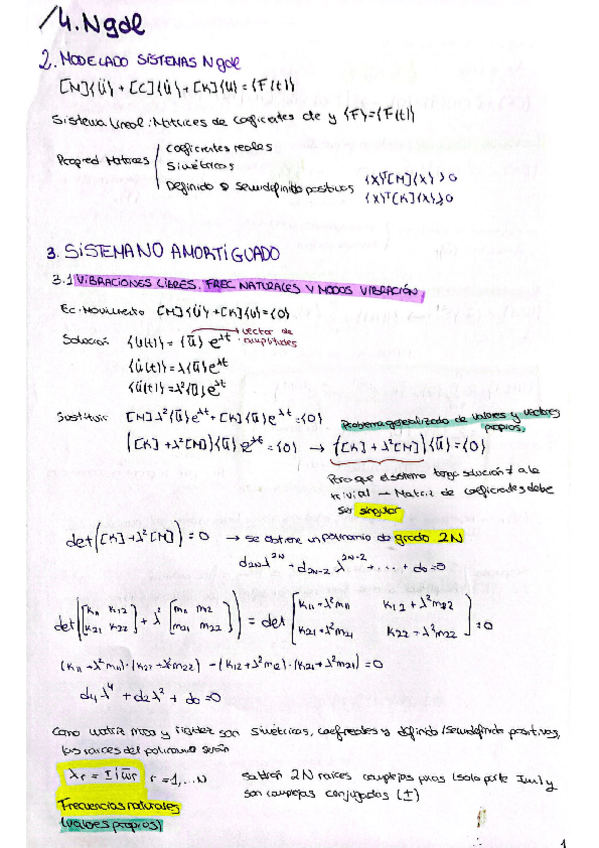 4. Ngdl
2. MODELADO SISTEMAS Ngdl
[M]{Ü} + [C]{U̇} + [K]{U} = {F(t)}
Sistema Lineal: Matrices de coeficientes cte y {F}={F(t)}
Propied Matrices
Coeficientes reales
Simétricas
Definido o semidefinido positivos
{x}ᵀ[M]{x} > 0
{x}ᵀ[K]{x} ≥ 0
3. SISTEMA NO AMORTIGUADO
3.1 VIBRACIONES LIBRES. FREC NATURALES Y MODOS VIBRACIÓN
Ec. Movimiento [M]{Ü} + [K]{U} = {0}
Solución {U(t)} = {ū} e^λt → vector de amplitudes
{U̇(t)} = λ{ū}e^λt
{Ü(t)} = λ²{ū}e^λt
Sustituir: [M]λ²{ū}e^λt + [K]{ū}e^λt = {0}
Problema generalizado de valores y vectores propios
([K] + λ²[M]){ū}e^λt = {0} → ([K] + λ²[M]){ū} = {0}
Para que el sistema tenga solución ≠ a la
trivial → Matriz de coeficientes debe
ser singular
det([K]+λ²[M]) = 0 → se obtiene un polinomio de grado 2N
d2N λ^2N + d2N-2 λ^2N-2 + ... + d0 = 0
det([k11 k12 k21 k22] + λ²[m11 m12 m21 m22]) = det[k11+λ²m11 k12+λ²m12 k21+λ²m21 k22+λ²m22] = 0
(k11+λ²m11)·(k22+λ²m22) - (k12+λ²m12)·(k21+λ²m21) = 0
d4λ⁴ + d2λ² + d0 = 0
Como matriz masa y rigidez son simétricas, coef reales y definido/semidefinido positivas,
las raices del polinomio serán
λr = ± i ω̄r r = 1,... N
Saldrán 2N raices complejas puras (solo parte Im) y
son complejas conjugadas (±)
Frecuencias naturales
(valores propios)
1